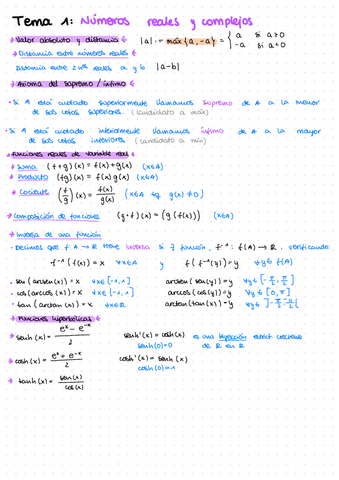 Tema 1: Números reales y complejos
Valor absoluto y distancia |a| = máx {a, -a} = { a si a ≥ 0
-a si a < 0
Distancia entre números reales
Distancia entre 2 nos reales a y b |a-b|
Axioma del supremo / ínfimo
· Si A está acotado superiormente llamamos supremo de A a la menor
de sus cotas superiores (candidato a máx)
· Si A está acotado inferiormente llamamos ínfimo de A a la mayor
de sus cotas inferiores (candidato a mín)
Funciones reales de variable real
Suma (f+g)(x) = f(x)+g(x) (x∈A)
Producto (fg)(x) = f(x)g(x) (x∈A)
Cociente (f/g)(x) = f(x)/g(x) (x∈A tq g(x)≠0)
Composición de funciones (g∘f)(x) = (g(f(x))) (x∈A)
Inversa de una función
· Decimos que f: A → R tiene inversa si ∃ función, f⁻¹: f(A) → R verificando:
f⁻¹(f(x)) = x ∀x∈A y f(f⁻¹(y)) = y ∀y∈f(A)
· sen(arcsen(x)) = x ∀x∈[-1,1] arcsen(sen(y)) = y ∀y∈[-π/2, π/2]
· cos(arccos(x)) = x ∀x∈[-1,1] arccos(cos(y)) = y ∀y∈[0,π]
· tan(arctan(x)) = x ∀x∈R arctan(tan(x)) = y ∀y∈]-π/2, π/2[
Funciones hiperbólicas
senh(x) = (eˣ - e⁻ˣ)/2 senh'(x) = cosh(x) es una biyección estrict creciente
senh(0)=0 de R en R
cosh(x) = (eˣ + e⁻ˣ)/2 cosh'(x) = senh(x)
cosh(0)=1
tanh(x) = sen(x)/cos(x)